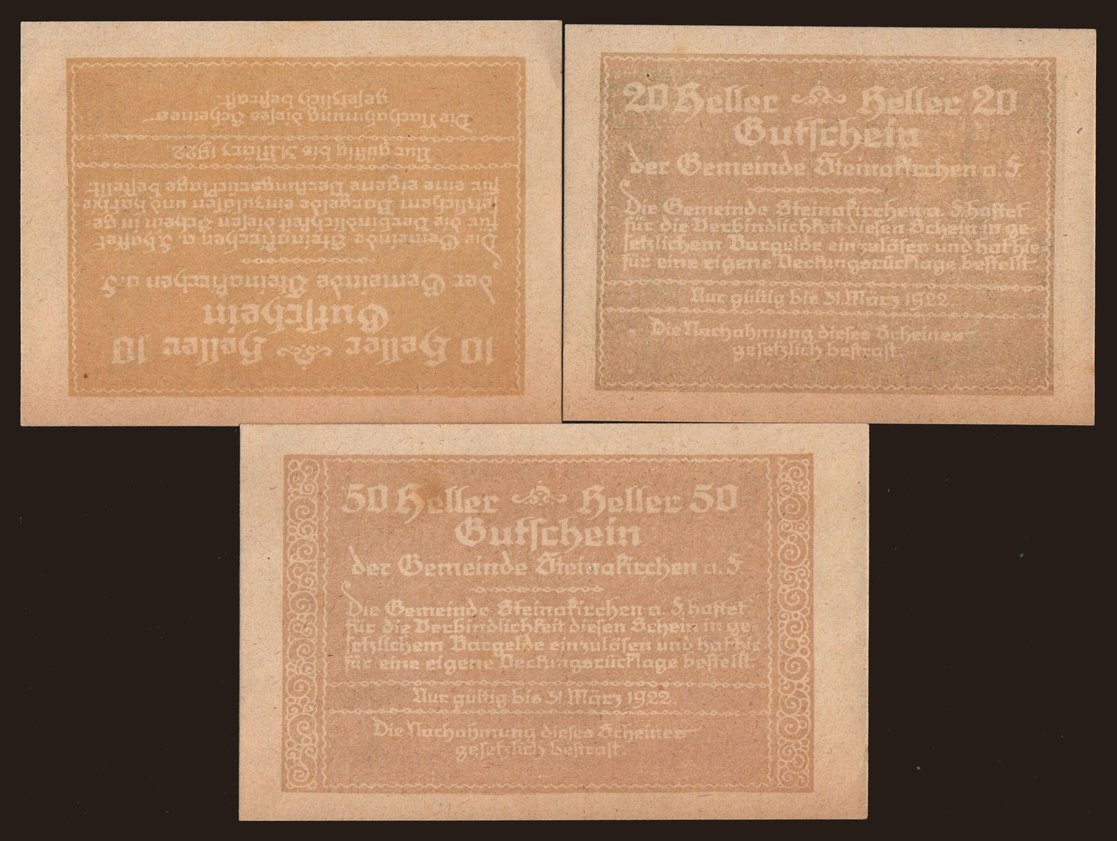 10 Heller Heller 10
Gutschein
der Gemeinde Steinakirchen a. F
Die Gemeinde Steinakirchen a. F. haftet
für die Verbindlichkeit diesen Schein in ge-
setzlichem Bargelde einzulösen und hat hie
für eine eigene Deckungsrücklage bestellt.
Nur gültig bis 31. März 1922.
Die Nachahmung dieses Scheines
gesetzlich bestraft.
20 Heller Heller 20
Gutschein
der Gemeinde Steinakirchen a. F
Die Gemeinde Steinakirchen a. F. haftet
für die Verbindlichkeit diesen Schein in ge-
setzlichem Bargelde einzulösen und hat hie
für eine eigene Deckungsrücklage bestellt.
Nur gültig bis 31. März 1922.
Die Nachahmung dieses Scheines
gesetzlich bestraft.
50 Heller Heller 50
Gutschein
der Gemeinde Steinakirchen a. F
Die Gemeinde Steinakirchen a. F. haftet
für die Verbindlichkeit diesen Schein in ge-
setzlichem Bargelde einzulösen und hat hie
für eine eigene Deckungsrücklage bestellt.
Nur gültig bis 31. März 1922.
Die Nachahmung dieses Scheines
gesetzlich bestraft.